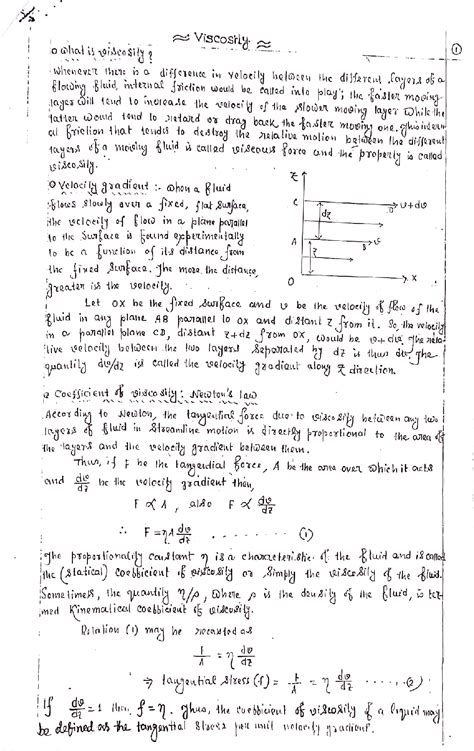 ≈ Viscosity ≈
1
o What is viscosity?
Whenever there is a difference in velocity between the different layers of a
flowing fluid, internal friction would be called into play; the faster moving
layer will tend to increase the velocity of the slower moving layer while the
latter would tend to retard or drag back the faster moving one. This intern
al friction that tends to destroy the relative motion between the different
layers of a moving fluid is called viscous force and the property is called
viscosity.
o Velocity gradient :- When a fluid
flows slowly over a fixed, flat surface,
the velocity of flow in a plane parallel
to the surface is found experimentally
to be a function of its distance from
the fixed surface. The more the distance,
greater is the velocity.
z
C D v+dv
dz
A B v
z
O x
Let OX be the fixed surface and v be the velocity of flow of the
fluid in any plane AB parallel to OX and distant z from it. So, the velocity
in a parallel plane CD, distant z+dz from OX, would be v+dv. The rela
tive velocity between the two layers separated by dz is thus dv. The
quantity dv/dz is called the velocity gradient along z direction.
Coefficient of viscosity: Newton's law
According to Newton, the tangential force due to viscosity between any two
layers of fluid in streamline motion is directly proportional to the area of
the layers and the velocity gradient between them.
Thus, if F be the tangential force, A be the area over which it acts
and dv/dz be the velocity gradient then,
F ∝ A, also F ∝ dv/dz
∴ F = ηA dv/dz ........ (1)
The proportionality constant η is a characteristic of the fluid and is called
the (statical) coefficient of viscosity or simply the viscosity of the fluid.
Sometimes, the quantity η/ρ, where ρ is the density of the fluid, is ter
med Kinematical coefficient of viscosity.
Relation (1) may be recasted as
F/A = η dv/dz
⇒ tangential stress (f) = F/A = η dv/dz ..... (2)
If dv/dz = 1 then, f = η. Thus, the coefficient of viscosity of a liquid may
be defined as the tangential stress per unit velocity gradient.